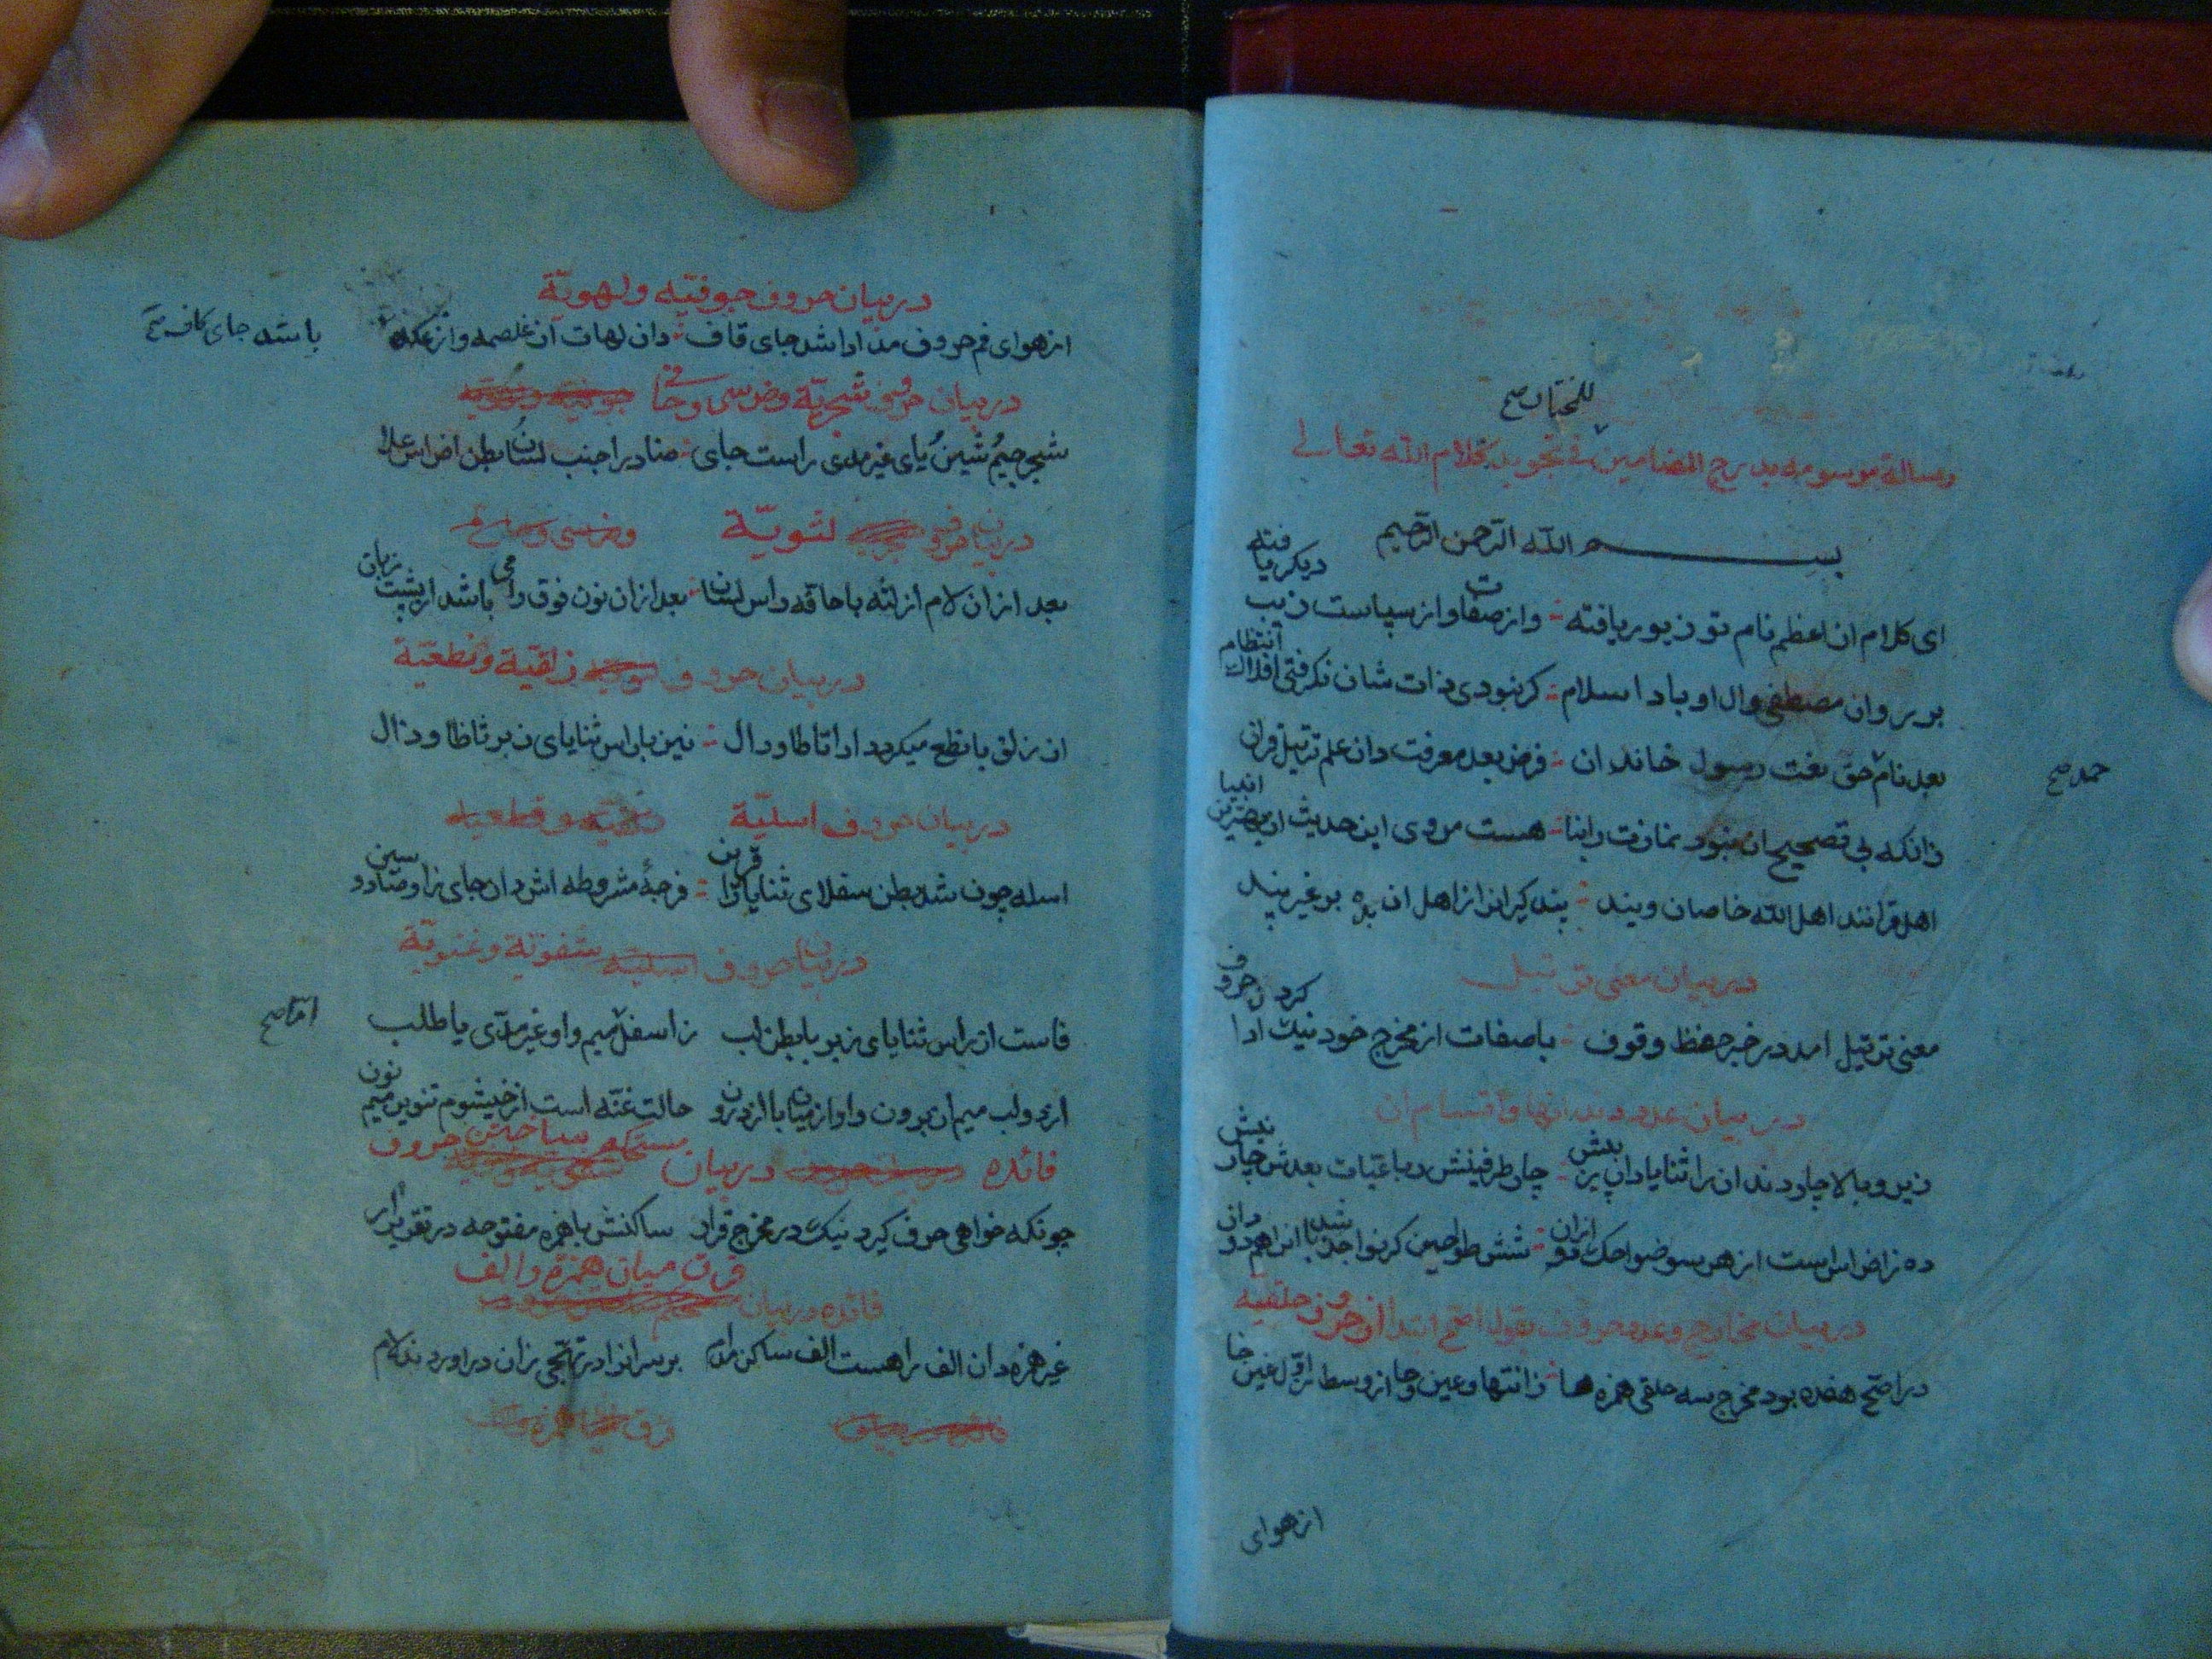 للمختار صح
رسالة موسومه بدرج المضامین فی تجوید کلام الله تعالی
بسم الله الرحمن الرحیم
ای کلام از اعظم نام تو زیور یافته وز صفات و از سپاست زیب دیگر یافته
بر روان مصطفی وال او باد اسلام کر نبودی ذات شان نکرفتی افلاک انتظام
بعد نام حق نعت رسول خاندان فرض بعد معرفت دان علم ترتیل قران
حمد صح
زانکه بی تصحیح ان نبود نمازت رابنا هست مروی این حدیث از بهترین انبیا
اهل قرانند اهل الله خاصان ویند پند کیر از اهل ان بده بر غیر پند
در بیان معنی ترتیل
معنی ترتیل امد در خبر حفظ وقوف با صفات از مخرج خود نیک ادا کردن حروف
در بیان عدد دندانها واقسام ان
زیر و بالا چار دندان را ثنایا دان پیش چار طرفینش رباعیات بعدش چار نیش
ده ز اضراس است از هر سو ضواحک از ان دو شش طواحین کر نواجد باشد انرا هم دو دان
در بیان مخارج وعدد حروف بقول اصح ابتدا از حروف حلقیه
در اصح هفده بود مخرج سه حلقی همزه ها ز انتها وعین وحا از وسط از اول غین خا
از هوای
در بیان حروف جوفیه ولهویة
از هوای فم حروف مد ادا شد جای قاف دان لهات ان غلصمه واز عکده
باشد جای کاف صح
در بیان حروف شجریة وضرسی وحافی
شجر جیم شین یای غیر مدی راست جای ضاد را جنب لسان بطن اضراس علا
در بیان حروف لثویة
بعد ازان لام از لثه باحاقه وراس لسان بعد ازان نون فوق وامی باشد از پشت زبان
در بیان حروف زلقیة ونطعیة
ان ز زلق با نطع میکردد ادا تا طا و دال نیز با راس ثنایای زبر ثا ظا و ذال
در بیان حروف اسلیة
اسله چون شد بطن سفلای ثنایا را قرین فرجۀ مشروطه اش دان جای زا و صاد و سین
در بیان حروف شفویة وغنویة
فاست از راس ثنایای زبر با بطن لب ز اسفل میم واو غیر مدی یا طلب
اما صح
از دو لب میم از برون واو از میان با از درون حالت غنه است از خیشوم تنوین میم نون
فائده در بیان مستحکم ساختن حروف
چونکه خواهی حرف کیرد نیک در مخرج قرار ساکنش با همزه مفتوحه در تقریر ار
فائده در بیان فرق میان همزه والف
غیر همزه دان الف را هست الف ساکن مدام بر سر انرا در تهجی زان در اوردند لام